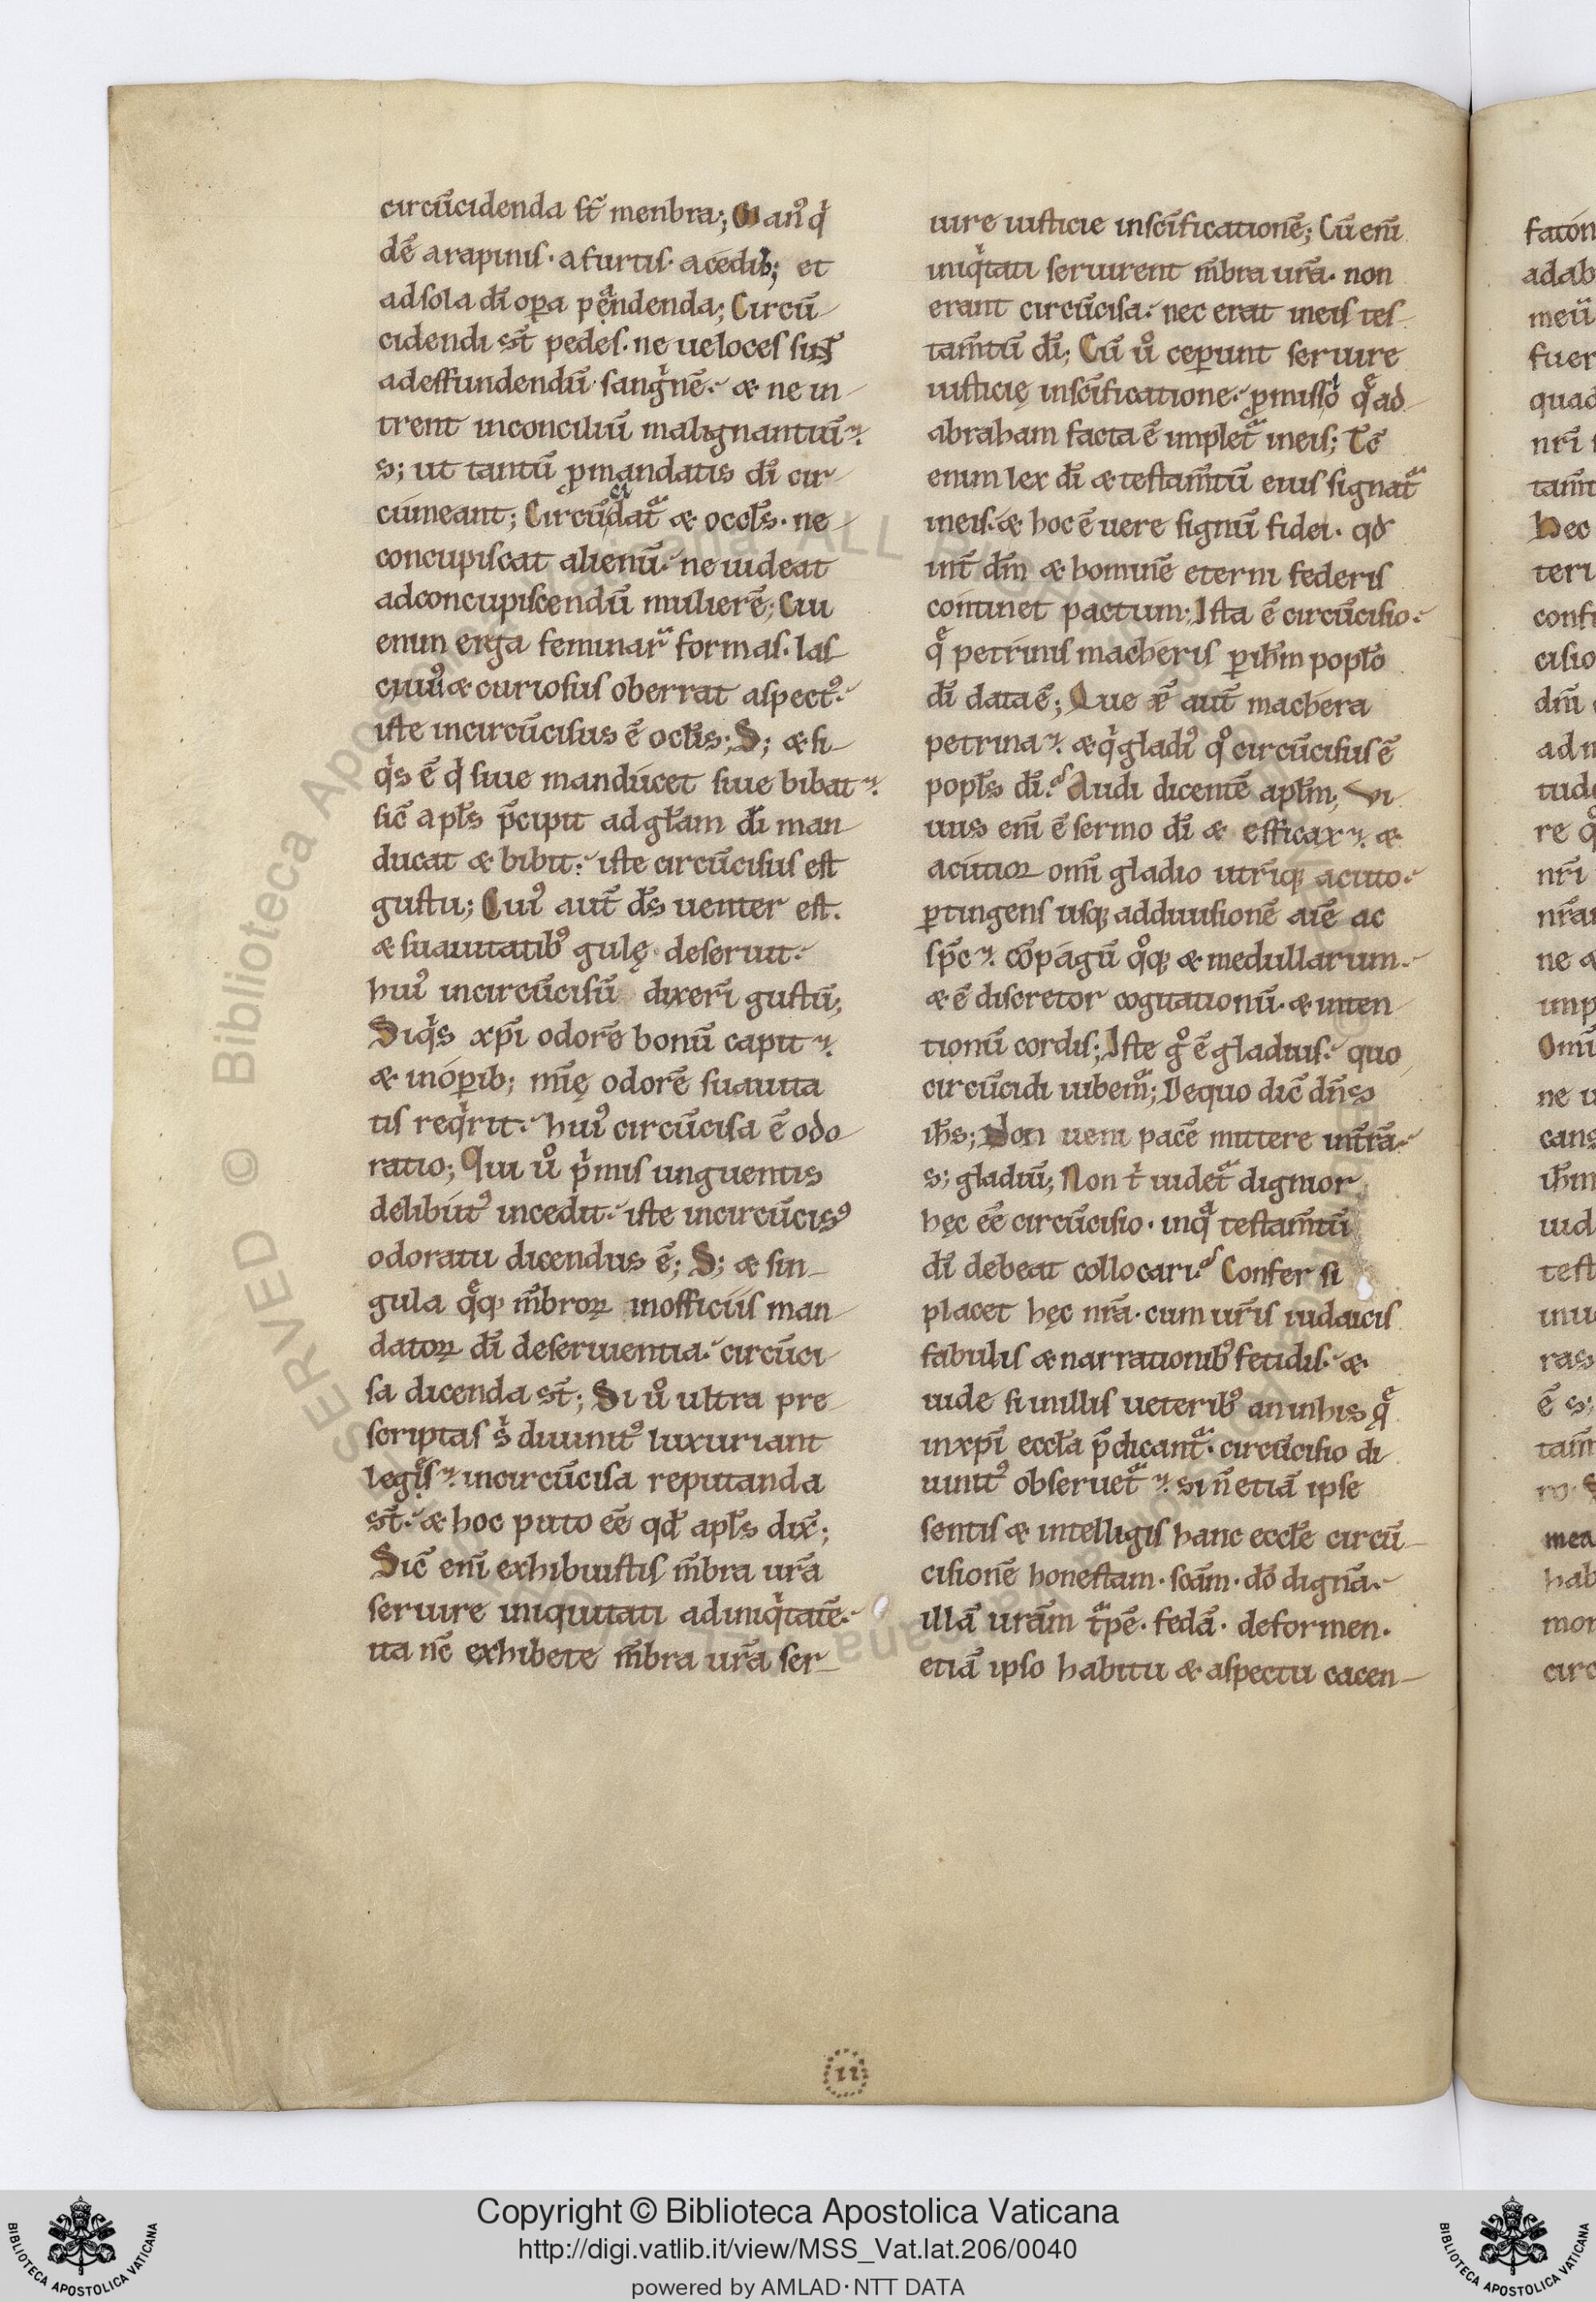 circu̅cidenda st̅ menbra; Man᷒ q̍
de̅ arapinis· afurtis· acedib; et
adsola di̅ oꝑa peͣndenda; Circu̅
cidendi st̅ pedes· ne ueloces sint
adeffundendu̅ sang̍ne̅· & ne in
trent inconciliu̅ malignantiu̅·
s; ut tantu̅ ꝓmandatis di̅ cir
cumeant; Circu̅cidat᷑ & occl̅s· ne
concupiscat alienu̅· ne uideat
adconcupiscendu̅ muliere̅; Cui
enim erga feminar᷑ formas· las
ciuu᷒ & curiosus oberrat aspect᷒·
iste incircu̅cisus e̅ ocl̅is; S; & si
q̍s e̅ q̍ siue manducet siue bibat·
sic̅ apl̅s p̅cipit adgl̅am di̅ man
ducat & bibit· iste circu̅cisus est
gustu; Cui᷒ aut̅ ds̅ uenter est.
& suauitatib᷒ gulę deseruit·
hui᷒ incircu̅cisu̅ dixeri̅ gustu̅;
Siq̍s xp̅i odore̅ bonu̅ capit·
& inoꝑib; mi̅ę odore̅ suauita
tis req̍rit· hui᷒ circu̅cisa e̅ odo
ratio; Qui ů p̍mis unguentis
delibut᷒ incedit· iste incircu̅cis᷒
odoratu dicendus e̅; S; & sin
gula qͤq; m̅broꝝ inofficiis man
datoꝝ di̅ deseruientia· circu̅ci
sa dicenda st̅; Si ů ultra pre
scriptas s̍ diuinit᷒ luxuriant
legͤs· incircu̅cisa reputanda
st̅· & hoc puto ee̅ qd̅ apl̅s dix̅;
Sic̅ eni̅ exhibuistis m̅bra ur̅a
seruire iniquitati adiniq̍tate̅·
ita nc̅ exhibete m̅bra ur̅a ser
uire iusticie insci̅ficatione̅; Cu̅ eni̅
iniq̍tati seruirent m̅bra ur̅a· non
erant circu̅cisa· nec erat ineis tes
tam̅tu̅ di̅; Cu̅ ů ceꝑunt seruire
iusticię insci̅ficatione· ꝓmissio qͤ ad
abraham facta e̅ implet᷑ ineis; Tc̅
enim lex di̅ & testam̅tu̅ eius signat᷑
ineis· & hoc e̅ uere signu̅ fidei· qd̅
int̅ dm̅ & homine̅ eterni federis
continet pactum; Ista e̅ circu̅cisio·
qͤ petrinis macheris ꝑ ihm̅ popl̅o
di̅ data e̅; Que e̅ aut̅ machera
petrina· & q̍ gladi᷒ qͦ circu̅cisus e̅
popl̅s di̅· Audi dicente̅ apl̅m; Vi
uus eni̅ e̅ sermo di̅ & efficax· &
acutior omi̅ gladio utri̅q; acuto·
ꝑtingens usq; addiuisione̅ ai̅e ac
sp̅c· co̅pagu̅ qͦq; & medullarum·
& e̅ discretor cogitationu̅· & inten
tionu̅ cordis; Iste gͦ e̅ gladius· quo
circu̅cidi iubem᷑; Dequo dic̅ dn̅s
ih̅s; Non ueni pace̅ mittere int̅ra̅·
s; gladiu̅; Non t̍ uidet᷑ dignior
hęc ee̅ circu̅cisio· inqͣ testam̅tu̅
di̅ debeat collocari· Confer si
placet hęc nr̅a· cum ur̅is iudaicis
fabulis & narrationib᷒ fetidis· &
uide si inillis ueterib᷒ an inhis qͤ
inxp̅i eccl̅a p̅dicant᷑· circu̅cisio di
uinit᷒ obseruet᷑· si n̅ etia̅ ipse
sentis & intelligis hanc eccl̅e circu̅
cisione̅ honestam· sca̅m· do̅ digna̅·
illa̅ ura̅m tͣpe̅· feda̅· deformen·
etia̅ ipso habitu & aspectu cacen
11
Copyright © Biblioteca Apostolica Vaticana
http://digi.vatlib.it/view/MSS_Vat.lat.206/0040
powered by AMLAD·NTT DATA